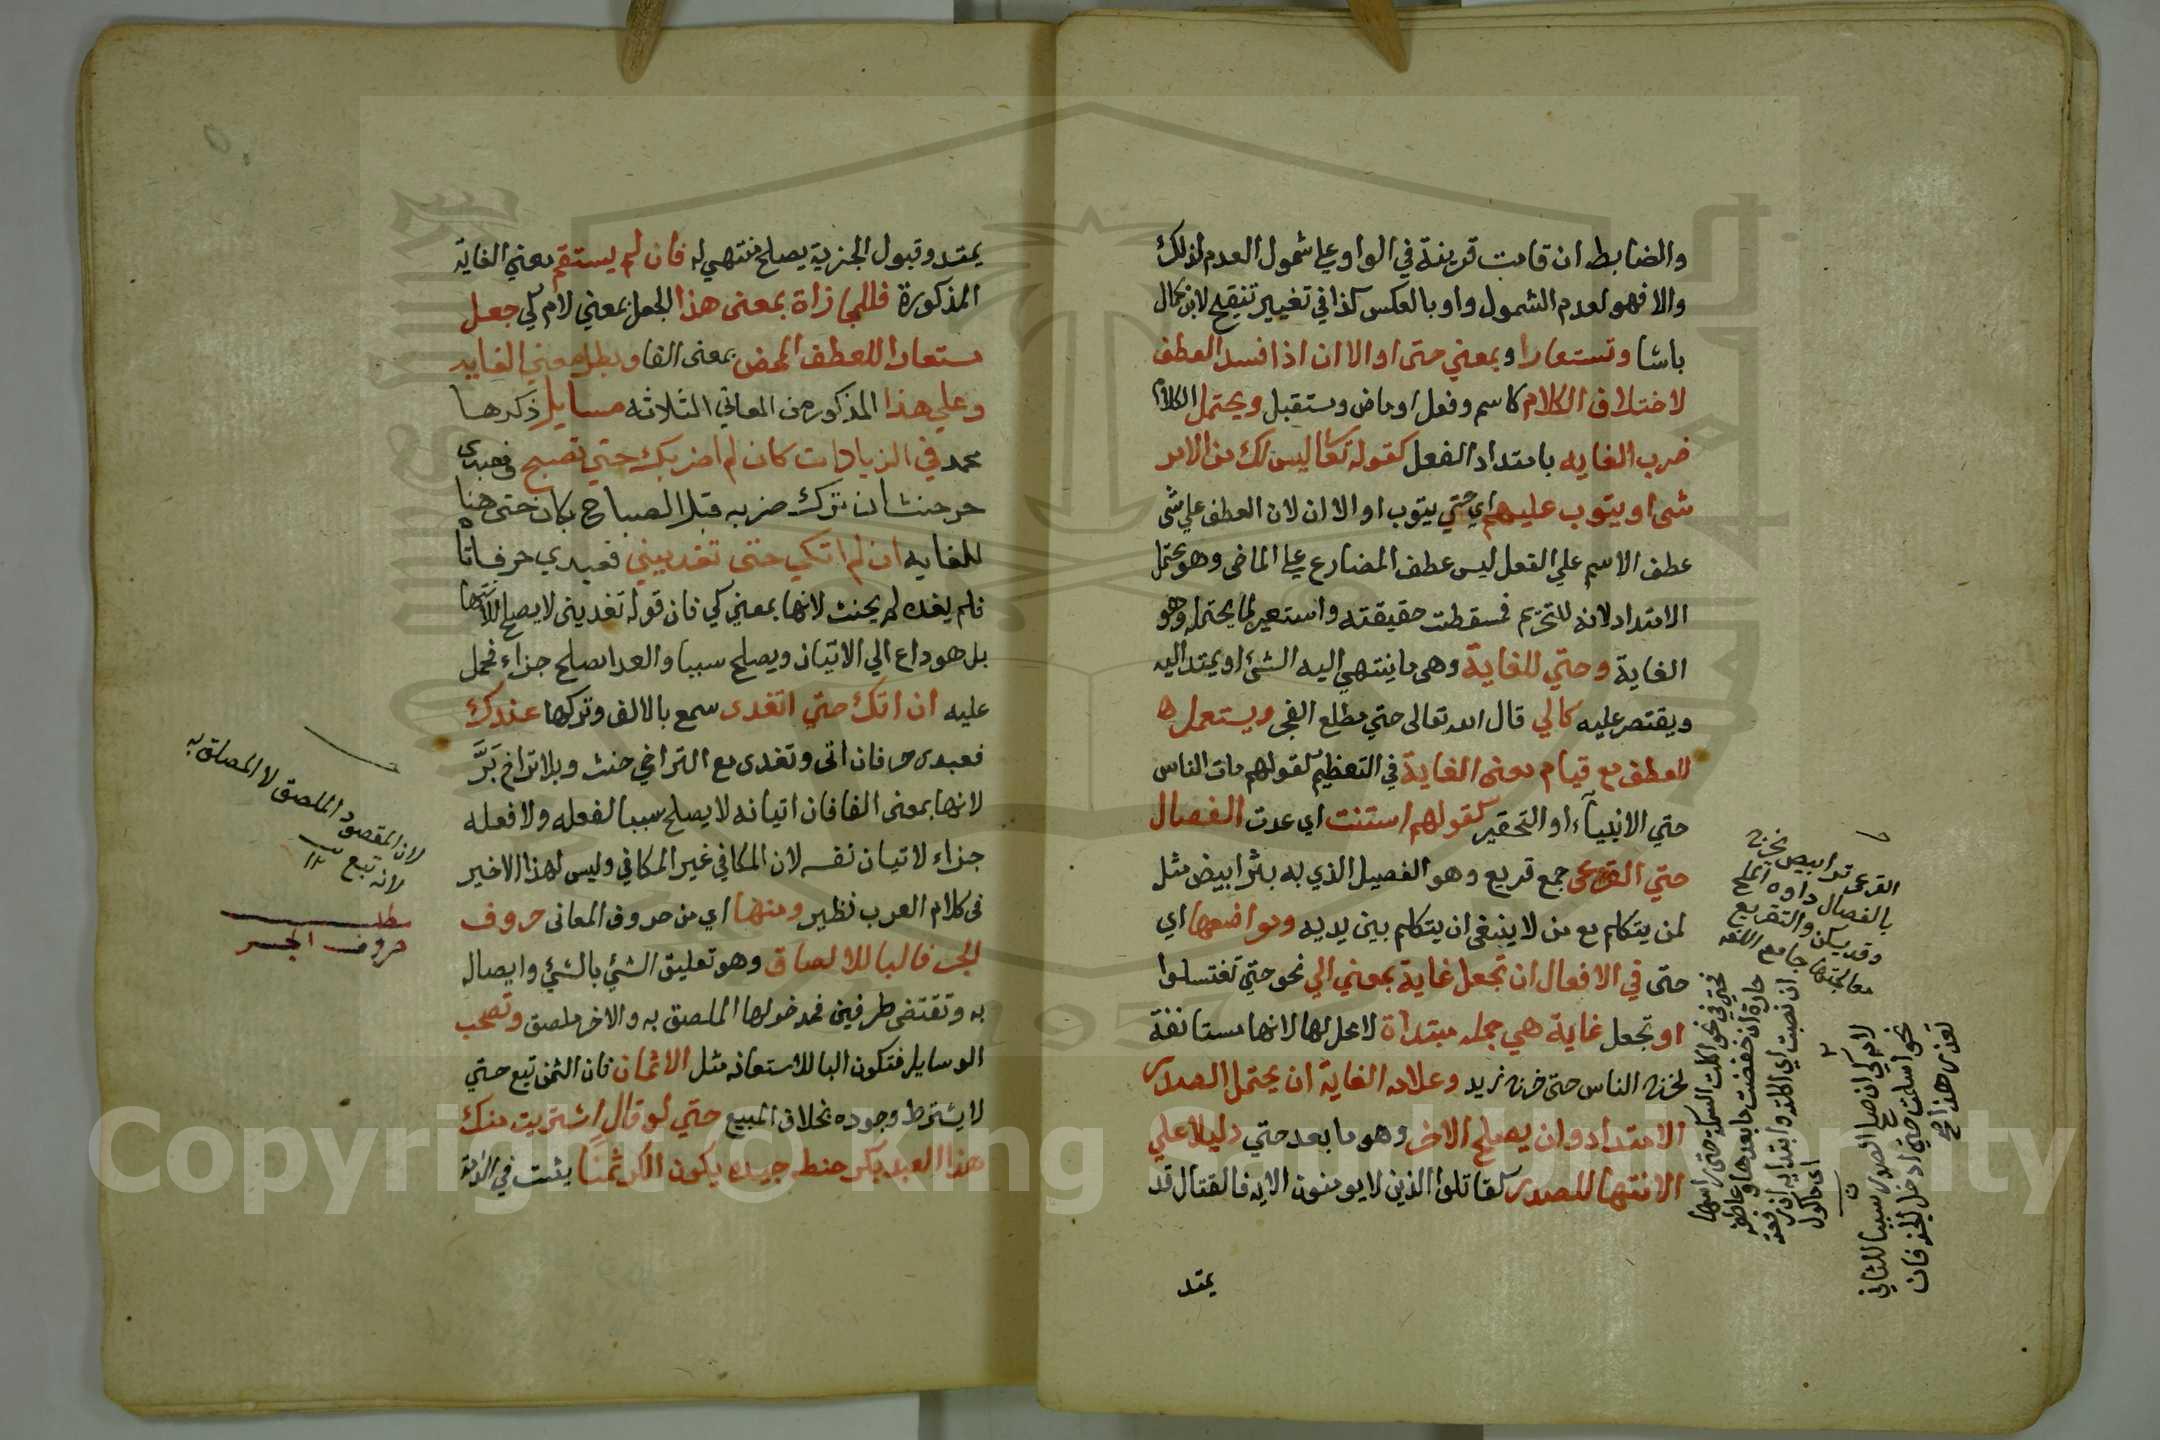 والضابط ان قامت قرينة في الواو علي شمول العدم فذلك
والا فهو لعدم الشمول واو بالعكس كذا في تغيير تنقيح لابن كمال
باشا وتستعار او بمعني حتي او الا ان اذا فسد العطف
لاختلاف الكلام كاسم وفعل او ماض ومستقبل ويحتمل الكلام
ضرب الغايه بامتداد الفعل كقوله تعالي ليس لك من الامر
شي او يتوب عليهم اي حتي يتوب او الا ان لان العطف علي شي
عطف الاسم علي الفعل ليس عطف المضارع علي الماضي وهو يحتمل
الامتداد لانه للتحريم فسقطت حقيقته واستعير لما يحتمله وهو
الغاية وحتي للغاية وهي ما ينتهي اليه الشئ او يمتد اليه
ويقتصر عليه كالي قال الله تعالى حتي مطلع الفجر ويستعمل
للعطف مع قيام معني الغاية في التعظيم كقولهم مات الناس
حتي الانبياء او التحقير كقولهم استنت اي عدت الفصال
حتي القرعى جمع قريع وهو الفصيل الذي به بثر ابيض مثل
لمن يتكلم مع من لا ينبغي ان يتكلم بين يديه ومواضعها اي
حتى في الافعال ان تجعل غاية بمعني الي نحو حتي تغتسلوا
او تجعل غاية هي جمله مبتداة لا محل لها لانها مستانفة
الناس حتى زيد وعلامه الغاية ان يحتمل الصدر
الامتداد وان يصلح الاخر وهو ما بعد حتي دليلا علي
الانتها للصدر كقاتلوا الذين لا يومنون الايه فالقتال قد
يمتد
القرعى بثر ابيض
بالفصال داوه الملح
وقد يسكن والتقريع
معالجتها جامع اللغه
حتي في نحو اكلت السمكة حتى راسها
جارة ان خفضت ما بعدها وعاطفة
ان نصبت اي اكلته وابتدايه ان رفعته
اي ماكول
لام كي ان صلح الصدر سببا للثاني
نحو اسلمت حتي ادخل الجنة فان
تعذر هذا
يمتد وقبول الجزية يصلح منتهي له فان لم يستقم معني الغاية
المذكورة فللمجازاة بمعنى هذا الجعل بمعني لام كي جعل
مستعارا للعطف المحض بمعنى الفا وبطل معني الغايه
وعلي هذا المذكور من المعاني الثلاثه مسايل ذكرها
محمد في الزيادات كان لم اضربك حتي تصبح فعبدي
حر حنث ان ترك ضربه قبل الصباح فكان حتى هنا
للغايه ان لم اتك حتى تغديني فعبدي حر فاتاه
فلم يغده لم يحنث لانها بمعني كي فان قوله تغديني لا يصلح للانتها
بل هو داع الي الاتيان ويصلح سببا والغدا يصلح جزاء فحمل
عليه ان اتك حتي اتغدى سمع بالالف وتركها عندك
فعبدى حر فان اتى وتغدى مع التراخي حنث وبلا تراخ بر
لانها بمعنى الفا فان اتيانه لا يصلح سببا لفعله ولا فعله
جزاء لاتيان نفسه لان المكافي غير المكافي وليس لهذا الاخير
في كلام العرب نظير ومنها اي من حروف المعاني حروف
الجر فالبا للالصاق وهو تعليق الشئ بالشئ وايصاله
به وتقتضى طرفين فمدخولها الملصق به والاخر ملصق وتصحب
الوسايل فتكون البا للاستعانه مثل الاثمان فان الثمن تبع حتي
لا يشترط وجوده بخلاف المبيع حتي لو قال اشتريت منك
هذا العبد بكر حنطه جيده يكون الكر ثمنا يثبت في الذمة
لان المقصود الملصق لا الملصق به
لانه تبع ١٢
مطلب
حروف الجر
Copyright © King Saud University
1957